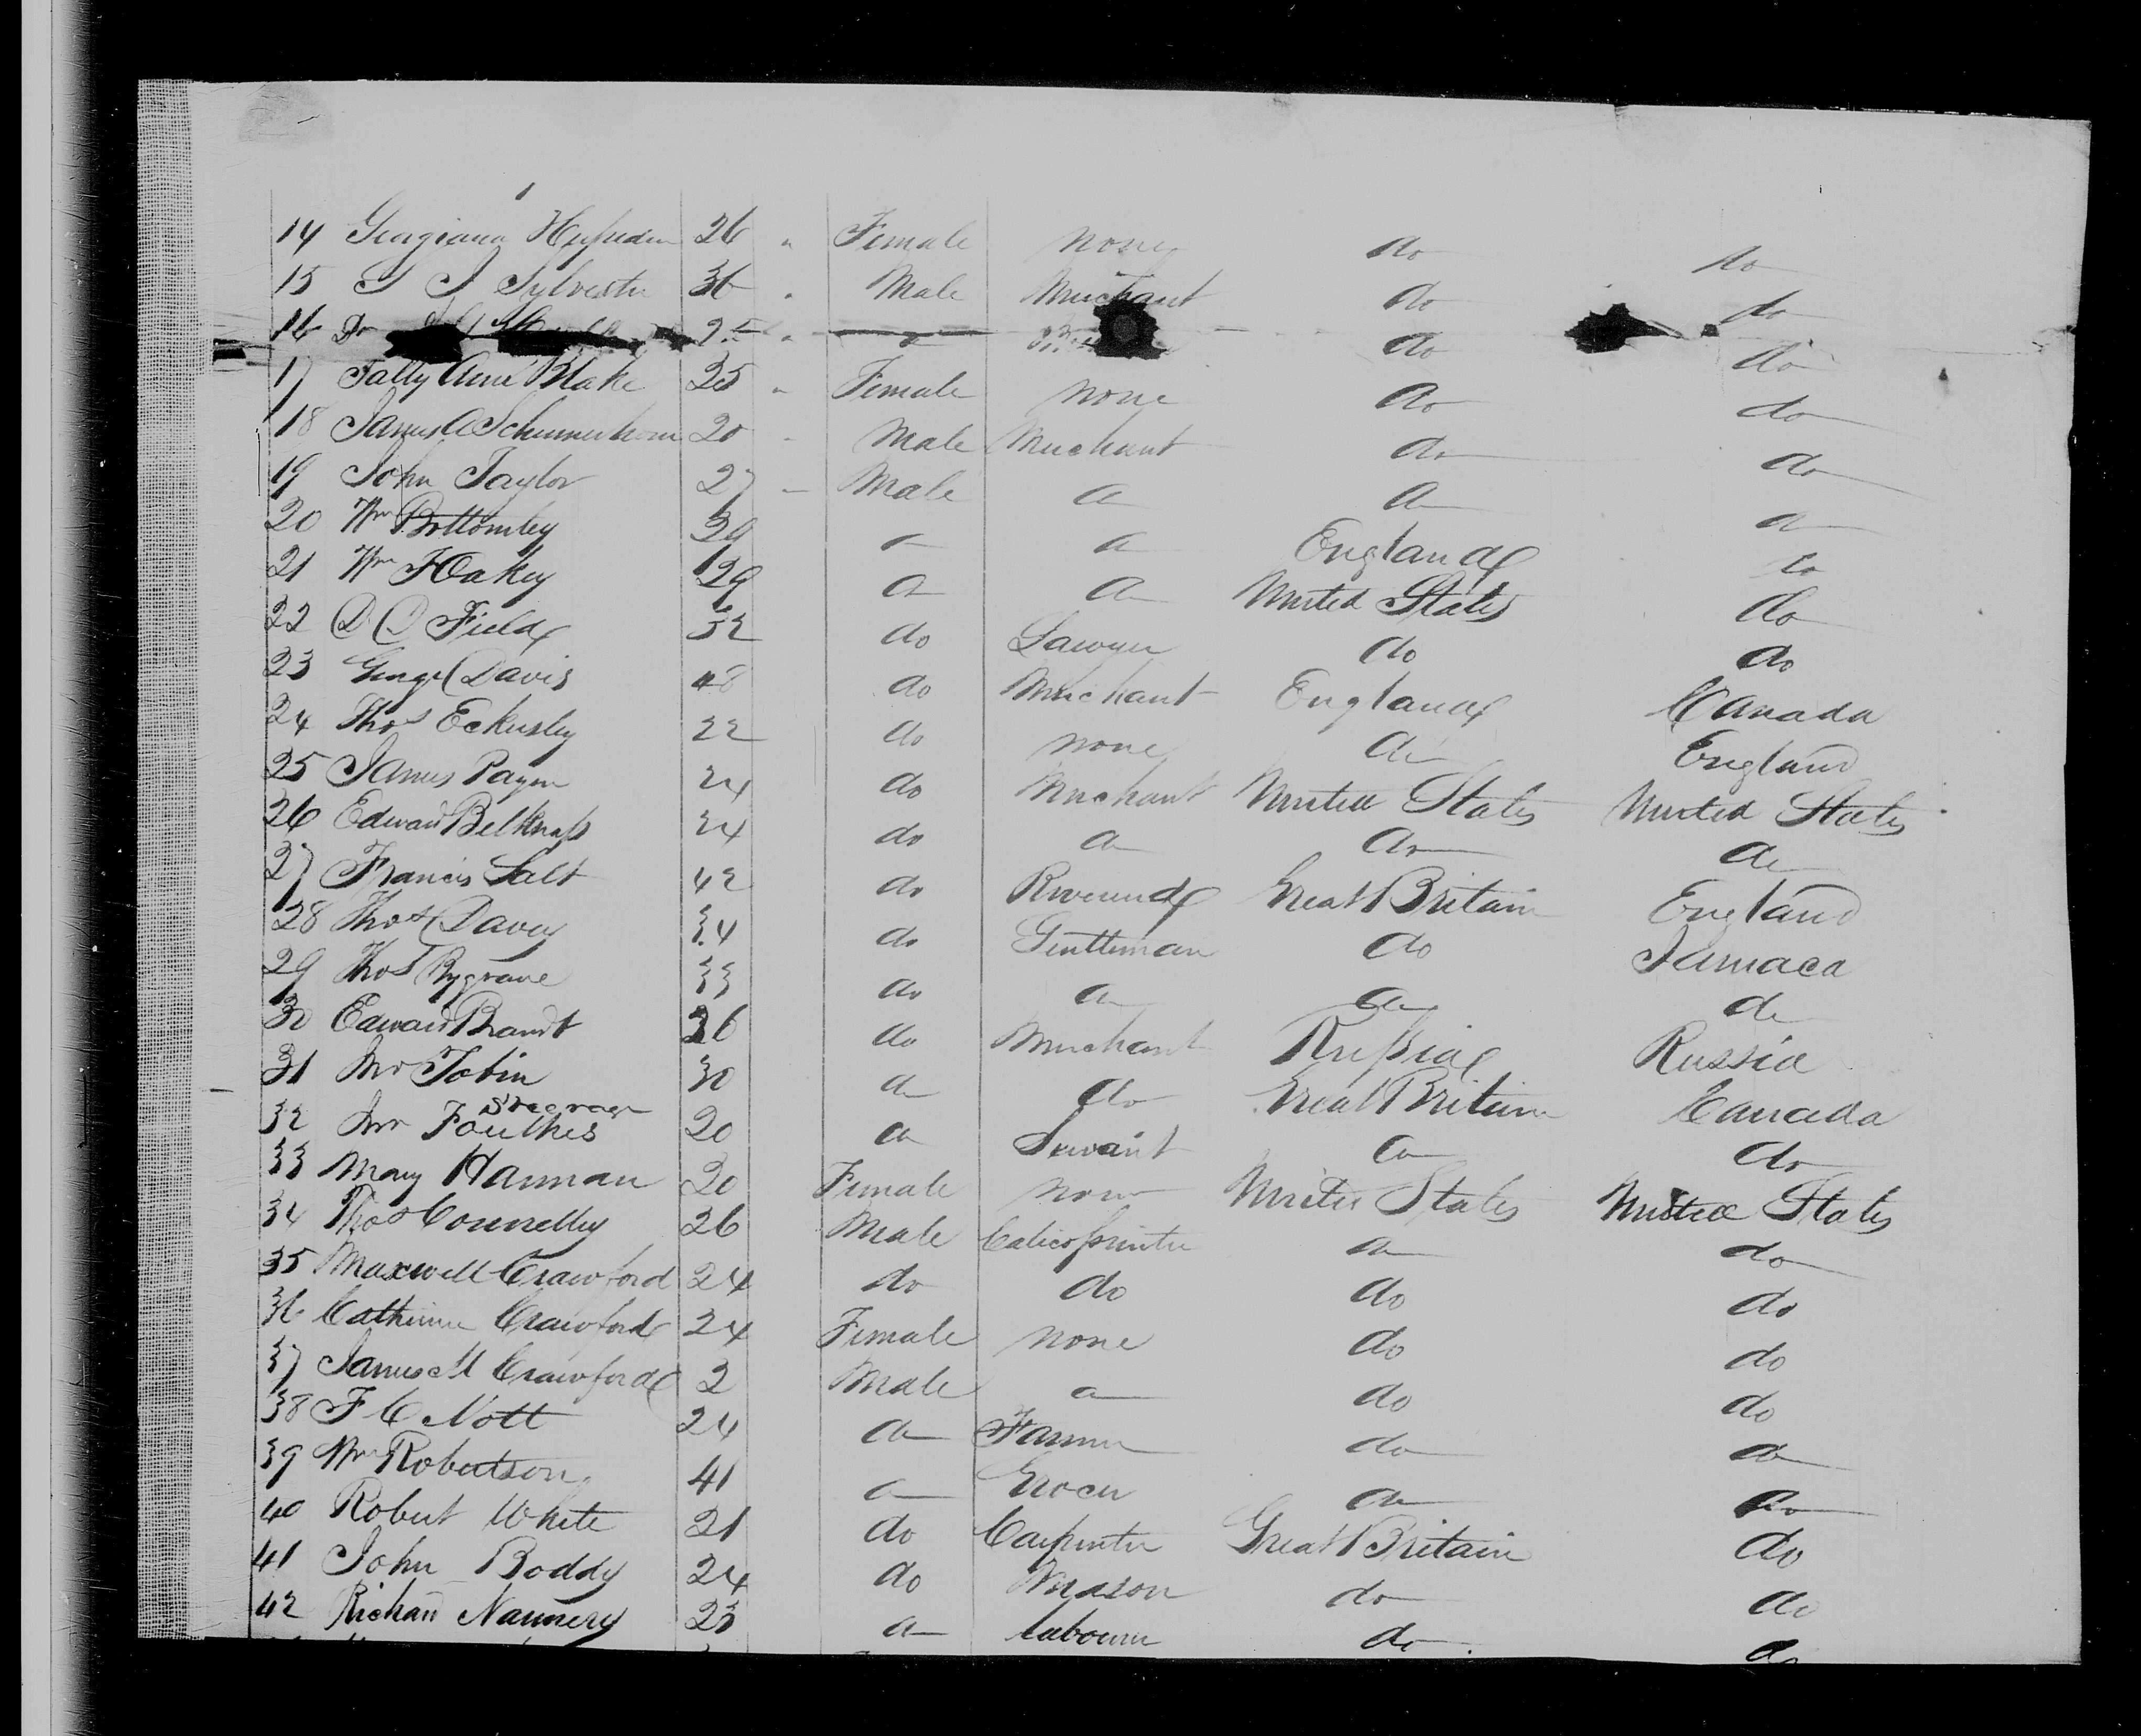 14 Georgiana 26 " Female none do do
15 S J Sylvester 36 " Male Merchant do do
16 Dr " do do
17 Sally Ann Blake 25 " Female none do do
18 James A Schermerhorn 20 " Male Merchant do do
19 John Taylor 27 " Male do do do
20 Wm Bottomley 39 do do England do
21 Wm F Oakey 29 do do United States do
22 D D Field 32 do Lawyer do do
23 George Davis 48 do Merchant England Canada
24 Thos Eckersley 22 do none do England
25 James Payen 24 do Merchant United States United States
26 Edward Belknap 24 do do do do
27 Francis Salt 42 do Reverend Great Britain England
28 Thos Davey 34 do Gentleman do Jamaca
29 Thos Bygrave 33 do do do do
30 Edward Brandt 26 do Merchant Russia Russia
31 Jno Tobin 30 do do Great Britain Canada
Steerage
32 Jno Foulkes 20 do Servant do do
33 Mary Hannan 20 Female none United States United States
34 Thos Connelly 26 Male Calico printer do do
35 Maxwell Crawford 24 do do do do
36 Catherine Crawford 24 Female none do do
37 James M Crawford 2 Male do do do
38 F C Nott 24 do Farmer do do
39 Wm Robertson 41 do Grocer do do
40 Robert White 21 do Carpenter Great Britain do
41 John Boddy 24 do Mason do do
42 Richard Nannery 23 do labourer do do